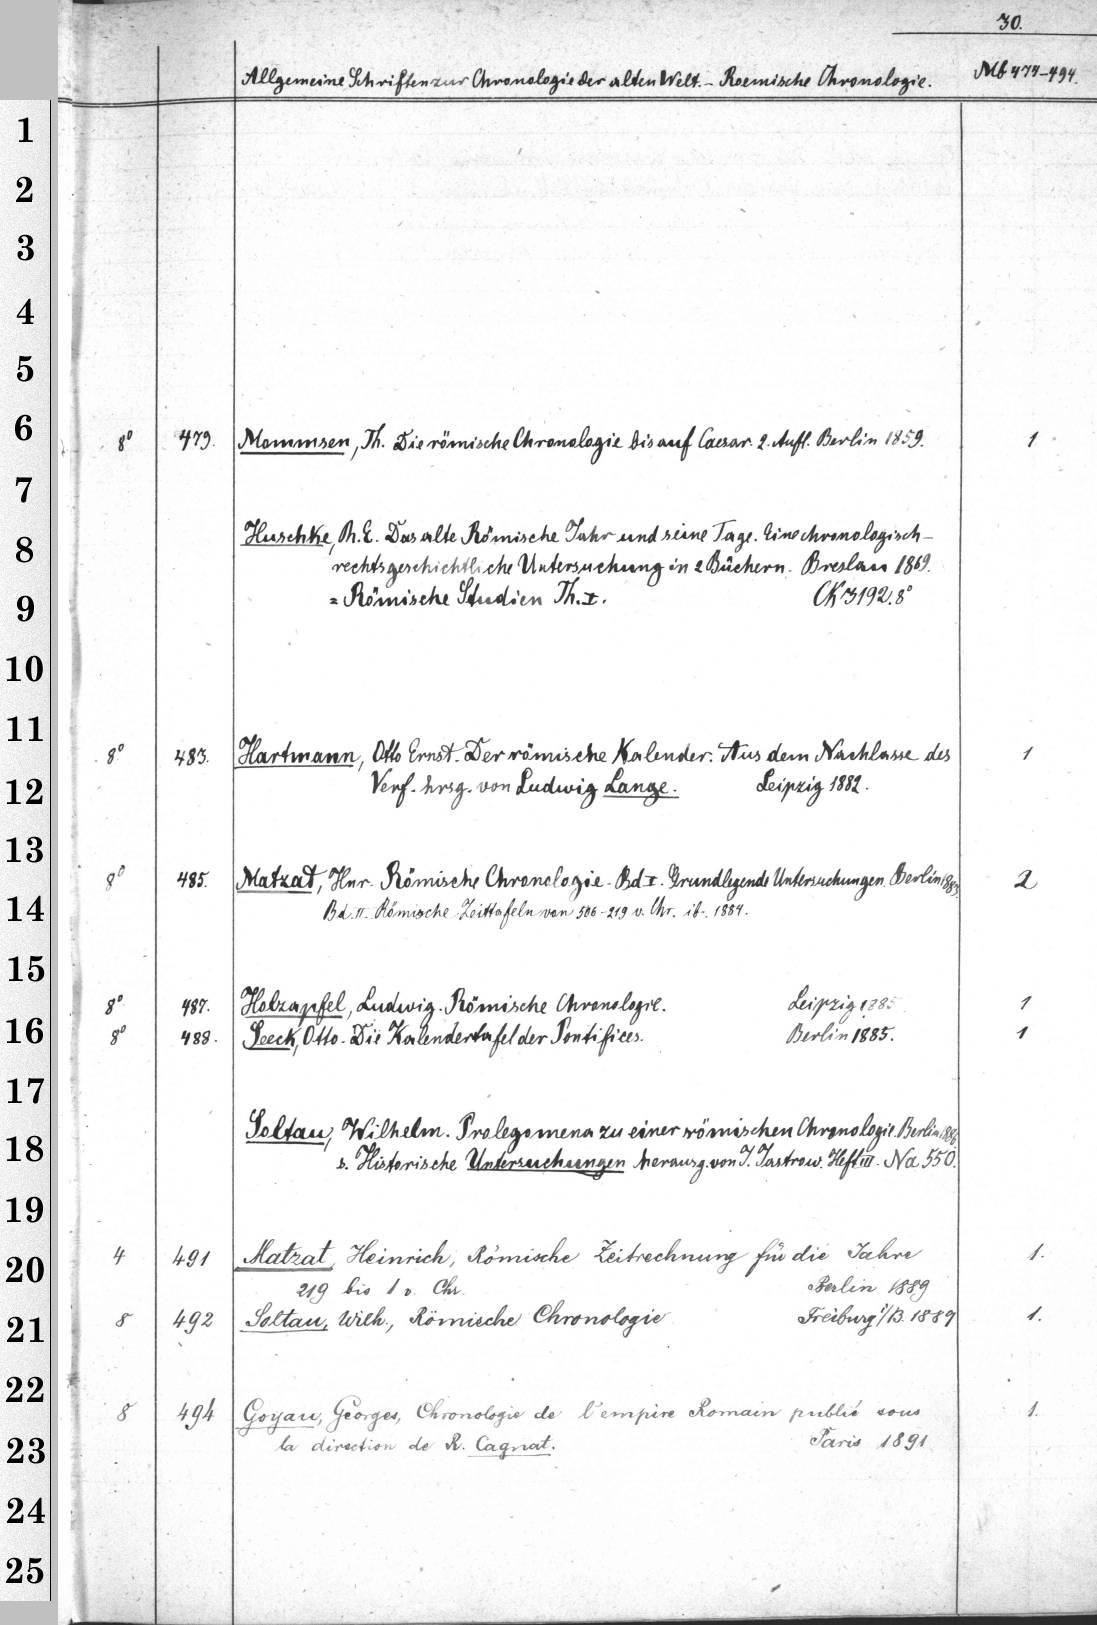 30.
Allgemeine Schriften zur Chronologie der alten Welt. – Roemische Chronologie. Mb 474–494.
1
2
3
4
5
6
8° 479. Mommsen, Th. Die römische Chronologie bis auf Caesar. 2. Aufl. Berlin 1859. 1
7
Huschke, Ph. E. Das alte Römische Jahr und seine Tage. Eine chronologisch-
8
rechtsgeschichtliche Untersuchung in 2 Büchern. Breslau 1869.
9
= Römische Studien Th. I. CK 3192. 8°
10
11
8° 483. Hartmann, Otto Ernst. Der römische Kalender. Aus dem Nachlasse des 1
12
Verf. hrsg. von Ludwig Lange. Leipzig 1882.
13
8° 485. Matzat, Hnr. Römische Chronologie. Bd I. Grundlegende Untersuchungen. Berlin 1883. 2
14
Bd. II. Römische Zeittafeln von 506–219 v. Chr. ib. 1884.
15
8° 487. Holzapfel, Ludwig. Römische Chronologie. Leipzig 1885 1
16
8° 488. Seeck, Otto. Die Kalendertafel der Pontifices. Berlin 1885. 1
17
Soltau, Wilhelm. Prolegomena zu einer römischen Chronologie. Berlin 1886.
18
s. Historische Untersuchungen herausg. von J. Jastrow. Heft III. Na 550.
19
4 491 Matzat, Heinrich, Römische Zeitrechnung für die Jahre 1.
20
219 bis 1 v. Chr. Berlin 1889
21
8 492 Soltau, Wilh., Römische Chronologie Freiburg i/B. 1889 1.
22
8 494 Goyau, Georges, Chronologie de l'empire Romain publié sous 1.
23
la direction de R. Cagnat. Paris 1891
24
25